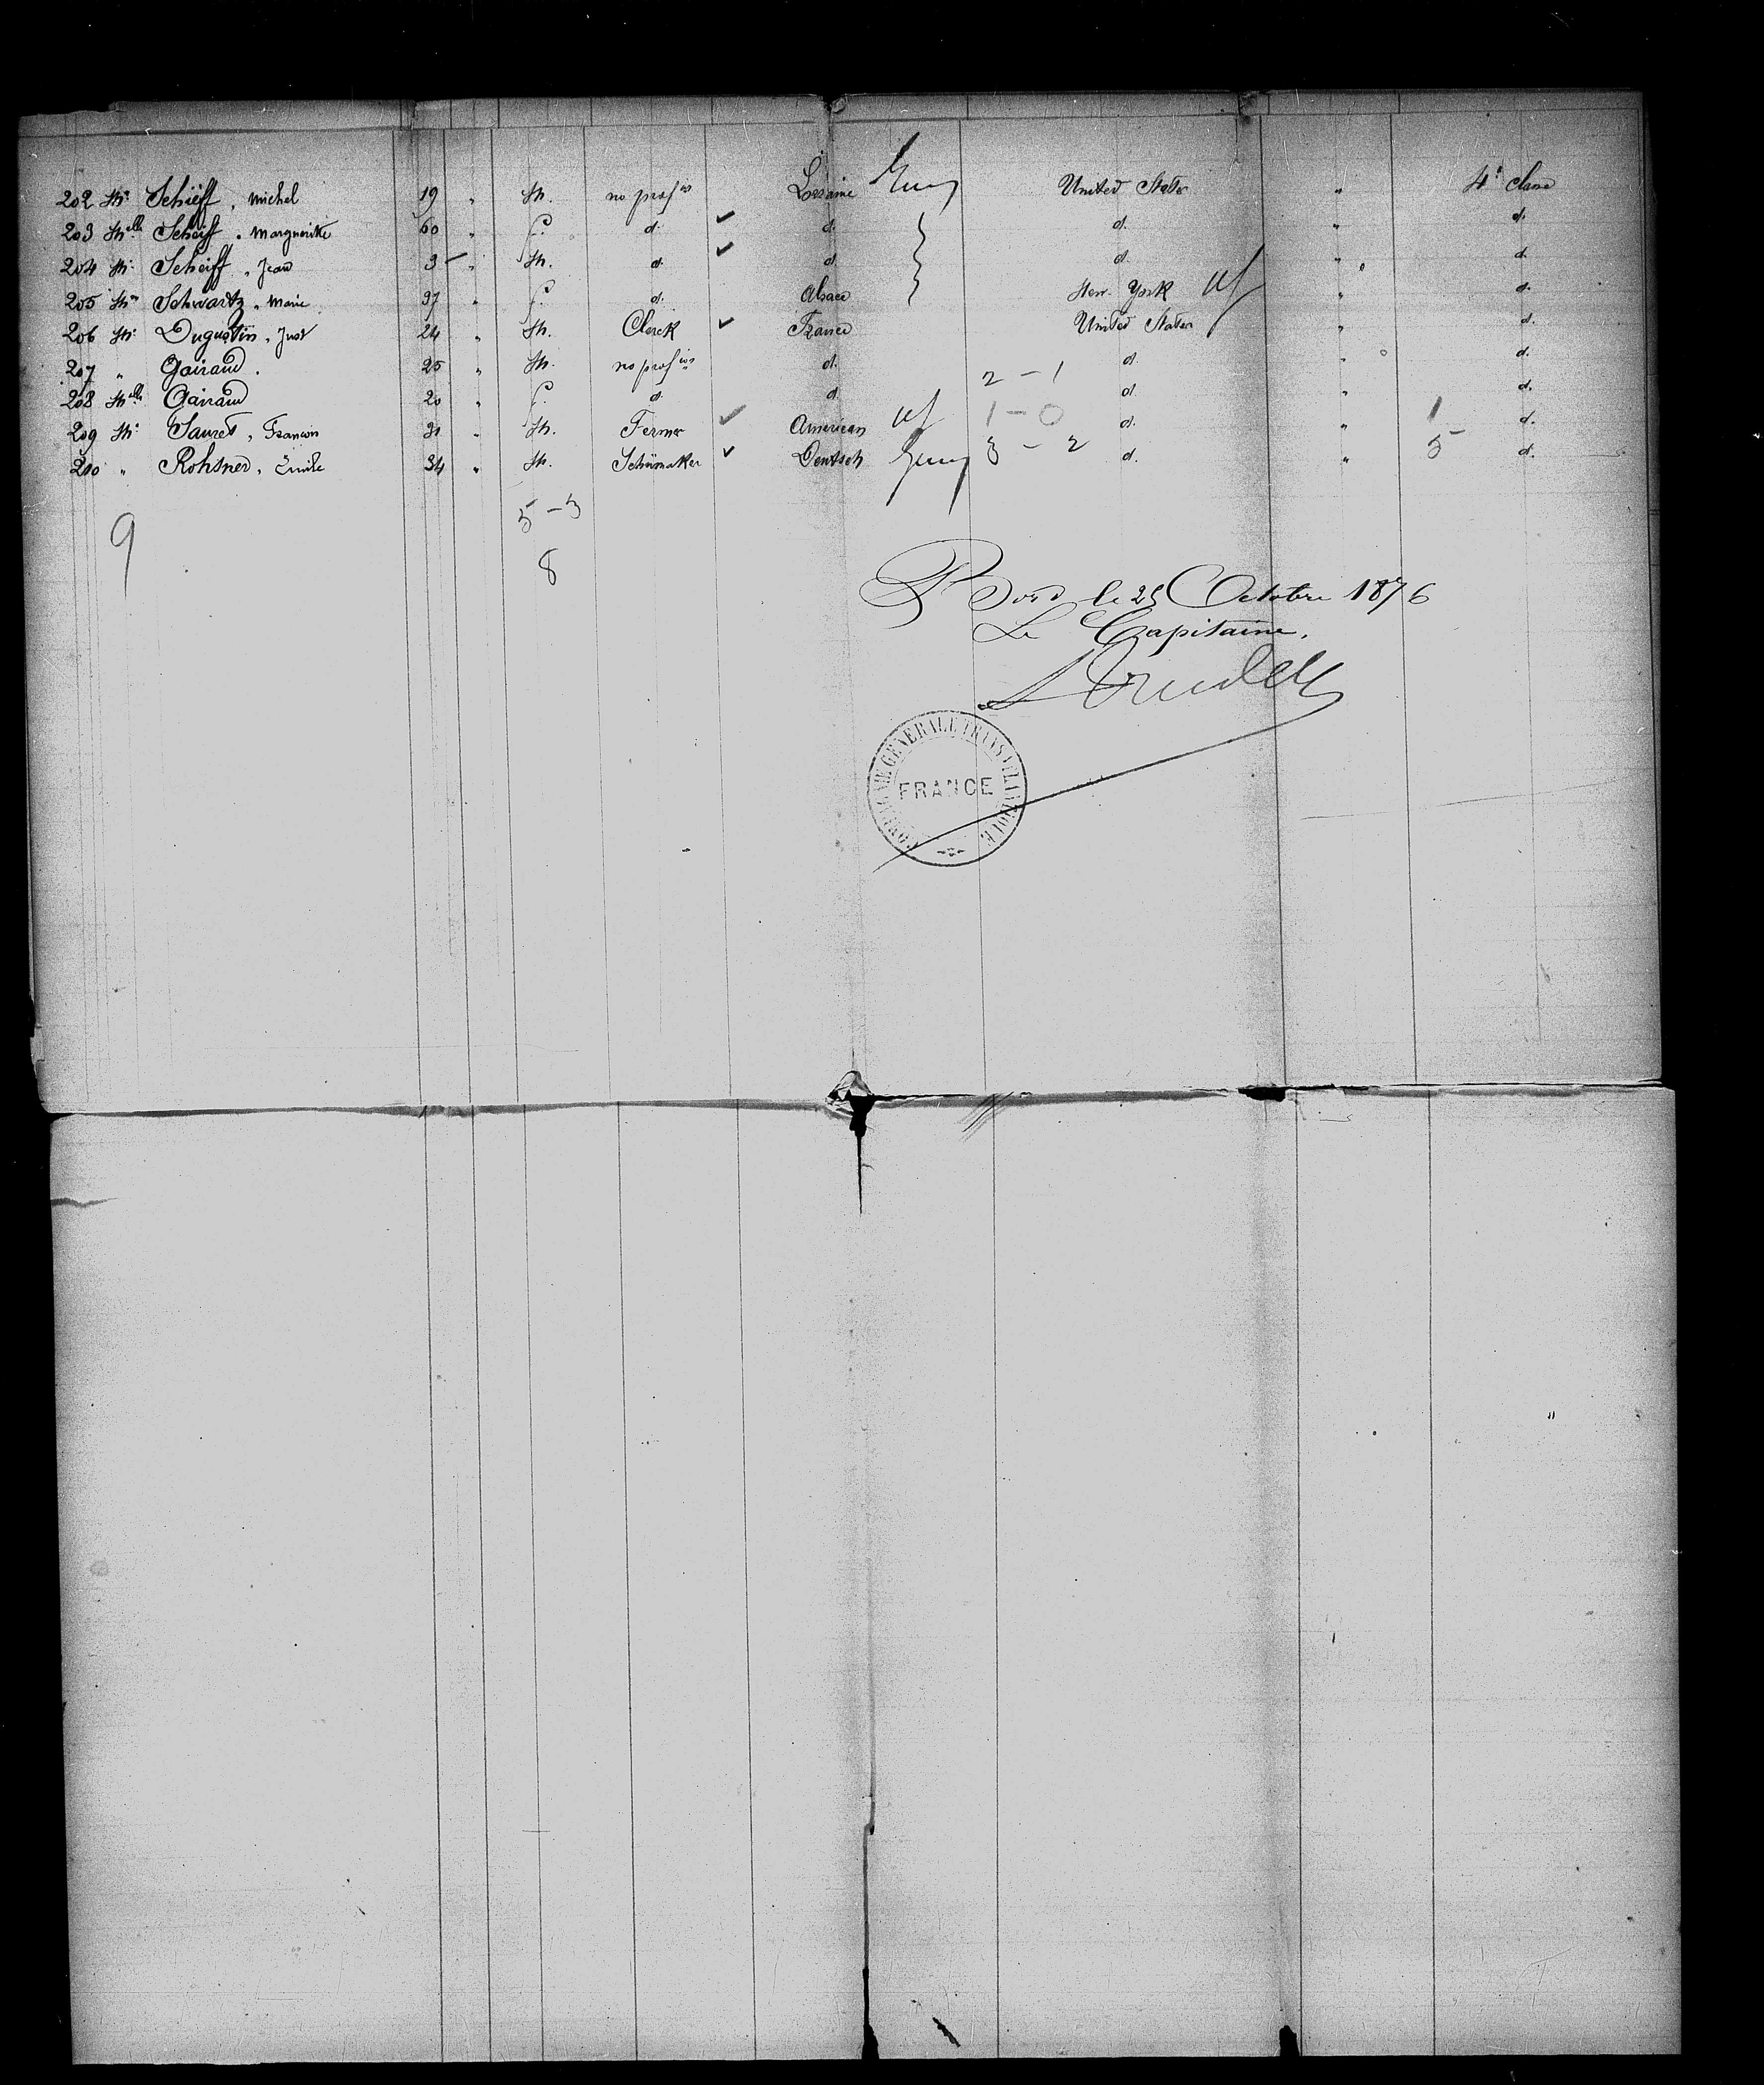 202 Mr Scheiff, Michel 19 " M. no profion Lorraine Germ United States " 4e classe
203 Melle Scheiff, Marguerite 60 " F. d. ✓ d. d. " d.
204 Mr Scheiff, Jean 3 " M. d. ✓ d. d. " d.
205 Me Schwartz, Marie 37 " F. d. Alsace New-York US " d.
206 Mr Dugustin, Just 24 " M. Clerck ✓ France United States " d.
207 " Gairaud. 25 " M. no profion d. d. " d.
2-1
208 Melle Gairaud 20 " F. d. d. d. " d.
209 Mr Sauret, François 31 " M. Fermer ✓ American US 1-0 d. " 1 d.
210 " Rohsner, Emile 34 " M. Schümaker ✓ Deutsch Germ 3-2 d. " 5 d.
5-3
9
8
Bord le 25 Octobre 1876
Le Capitaine,
COMPAGNIE GENERALE TRANSATLANTIQUE
FRANCE